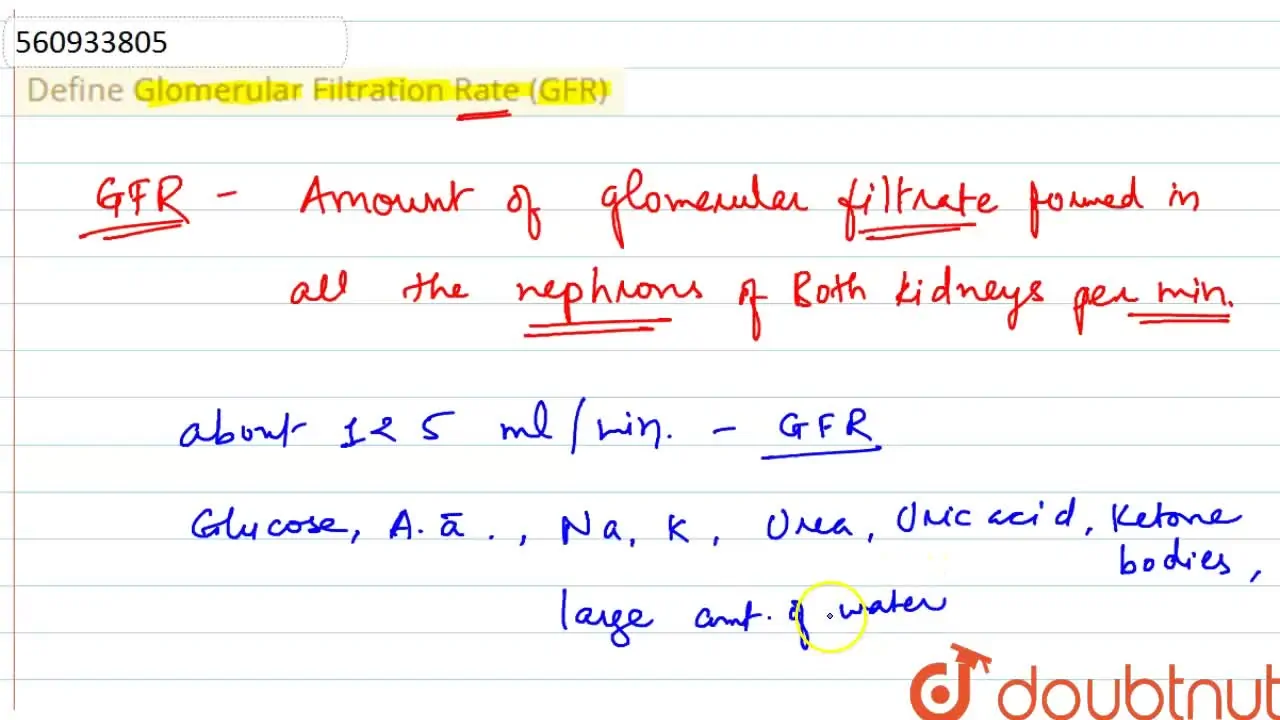 560933805
Define Glomerular Filtration Rate (GFR)
GFR - Amount of glomerular filtrate formed in
all the nephrons of Both kidneys per min.
about 125 ml/min. - GFR
Glucose, A.a., Na, K, Urea, Uric acid, Ketone
bodies,
large amt. of water
doubtnut